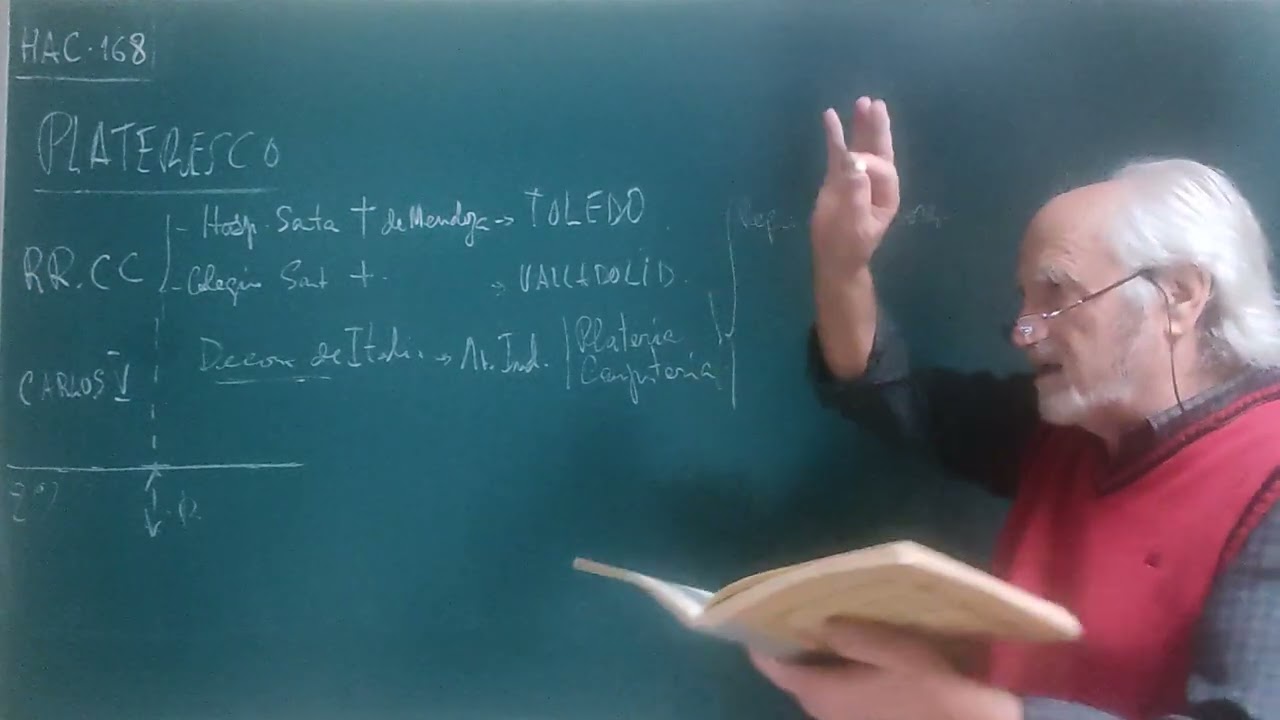 HAC-168
PLATERESCO
- Hosp. Sata † de Mendoza → TOLEDO
RR.CC
- Colegio Sant + → VALLADOLID.
Decor de Italia → Ind. Platería
Carpintería
CARLOS V